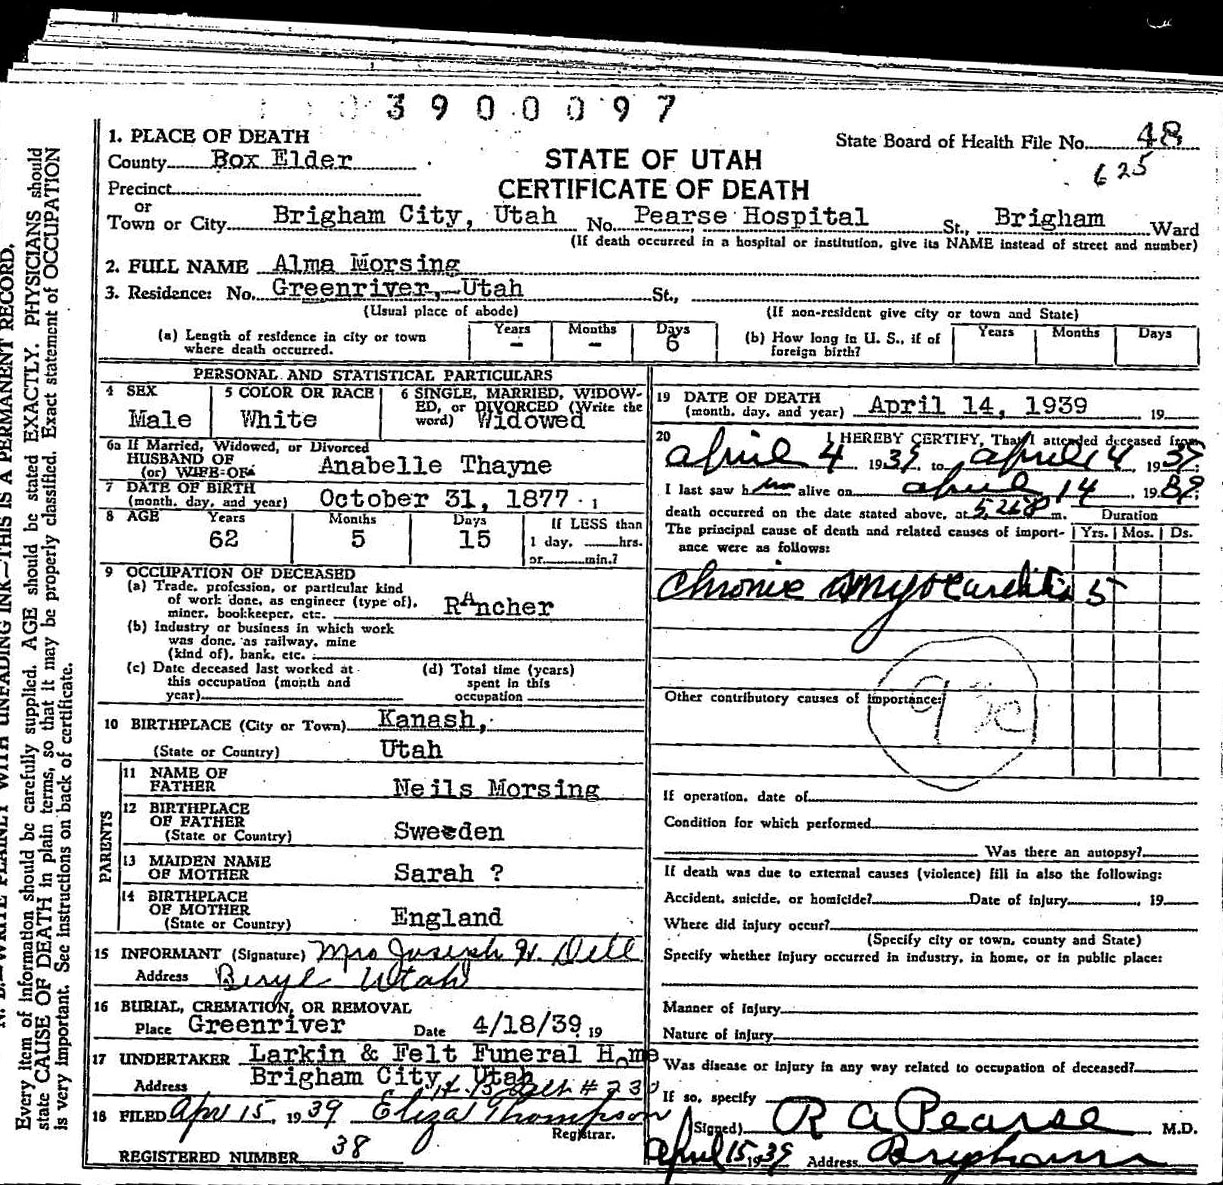 3900097
1. PLACE OF DEATH
State Board of Health File No. 48
County Box Elder
STATE OF UTAH
625
Precinct
CERTIFICATE OF DEATH
or
Town or City Brigham City, Utah No. Pearse Hospital St., Brigham Ward
(If death occurred in a hospital or institution, give its NAME instead of street and number)
2. FULL NAME Alma Morsing
3. Residence: No. Greenriver, Utah St.,
(Usual place of abode) (If non-resident give city or town and State)
(a) Length of residence in city or town where death occurred. Years - Months - Days 6
(b) How long in U. S., if of foreign birth? Years Months Days
PERSONAL AND STATISTICAL PARTICULARS
4 SEX Male
5 COLOR OR RACE White
6 SINGLE, MARRIED, WIDOWED, or DIVORCED (Write the word) Widowed
6a If Married, Widowed, or Divorced
HUSBAND OF
(or) WIFE OF Anabelle Thayne
7 DATE OF BIRTH
(month, day, and year) October 31, 1877
8 AGE Years 62 Months 5 Days 15 If LESS than
1 day, hrs.
or min.?
9 OCCUPATION OF DECEASED
(a) Trade, profession, or particular kind
of work done, as engineer (type of),
miner, bookkeeper, etc. RAncher
(b) Industry or business in which work
was done, as railway, mine
(kind of), bank, etc.
(c) Date deceased last worked at
this occupation (month and
year)
(d) Total time (years)
spent in this
occupation
10 BIRTHPLACE (City or Town) Kanash,
(State or Country) Utah
PARENTS
11 NAME OF
FATHER Neils Morsing
12 BIRTHPLACE
OF FATHER
(State or Country) Sweeden
13 MAIDEN NAME
OF MOTHER Sarah ?
14 BIRTHPLACE
OF MOTHER
(State or Country) England
15 INFORMANT (Signature) Mrs Joseph H. Dell
Address Beryl Utah
16 BURIAL, CREMATION, OR REMOVAL
Place Greenriver Date 4/18/39 19
17 UNDERTAKER Larkin & Felt Funeral Home
Address Brigham City, Utah
18 FILED Apr 15, 1939 Eliza Thompson
Registrar.
REGISTERED NUMBER 38
19 DATE OF DEATH
(month, day, and year) April 14, 1939 19
20 I HEREBY CERTIFY, That I attended deceased from
April 4, 1939, to April 14, 1939,
I last saw him alive on April 14, 1939,
death occurred on the date stated above, at m.
Duration
The principal cause of death and related causes of importance were as follows: Yrs. Mos. Ds.
Chronic Myocarditis 5
Other contributory causes of importance:
If operation, date of
Condition for which performed
Was there an autopsy?
If death was due to external causes (violence) fill in also the following:
Accident, suicide, or homicide? Date of injury , 19
Where did injury occur?
(Specify city or town, county and State)
Specify whether injury occurred in industry, in home, or in public place:
Manner of injury
Nature of injury
Was disease or injury in any way related to occupation of deceased?
If so, specify
(Signed) R A Pearse M.D.
April 15, 1939 Address Brigham
N. B.—WRITE PLAINLY WITH UNFADING INK—THIS IS A PERMANENT RECORD.
Every item of information should be carefully supplied. AGE should be stated EXACTLY. PHYSICIANS should
state CAUSE OF DEATH in plain terms, so that it may be properly classified. Exact statement of OCCUPATION
is very important. See instructions on back of certificate.